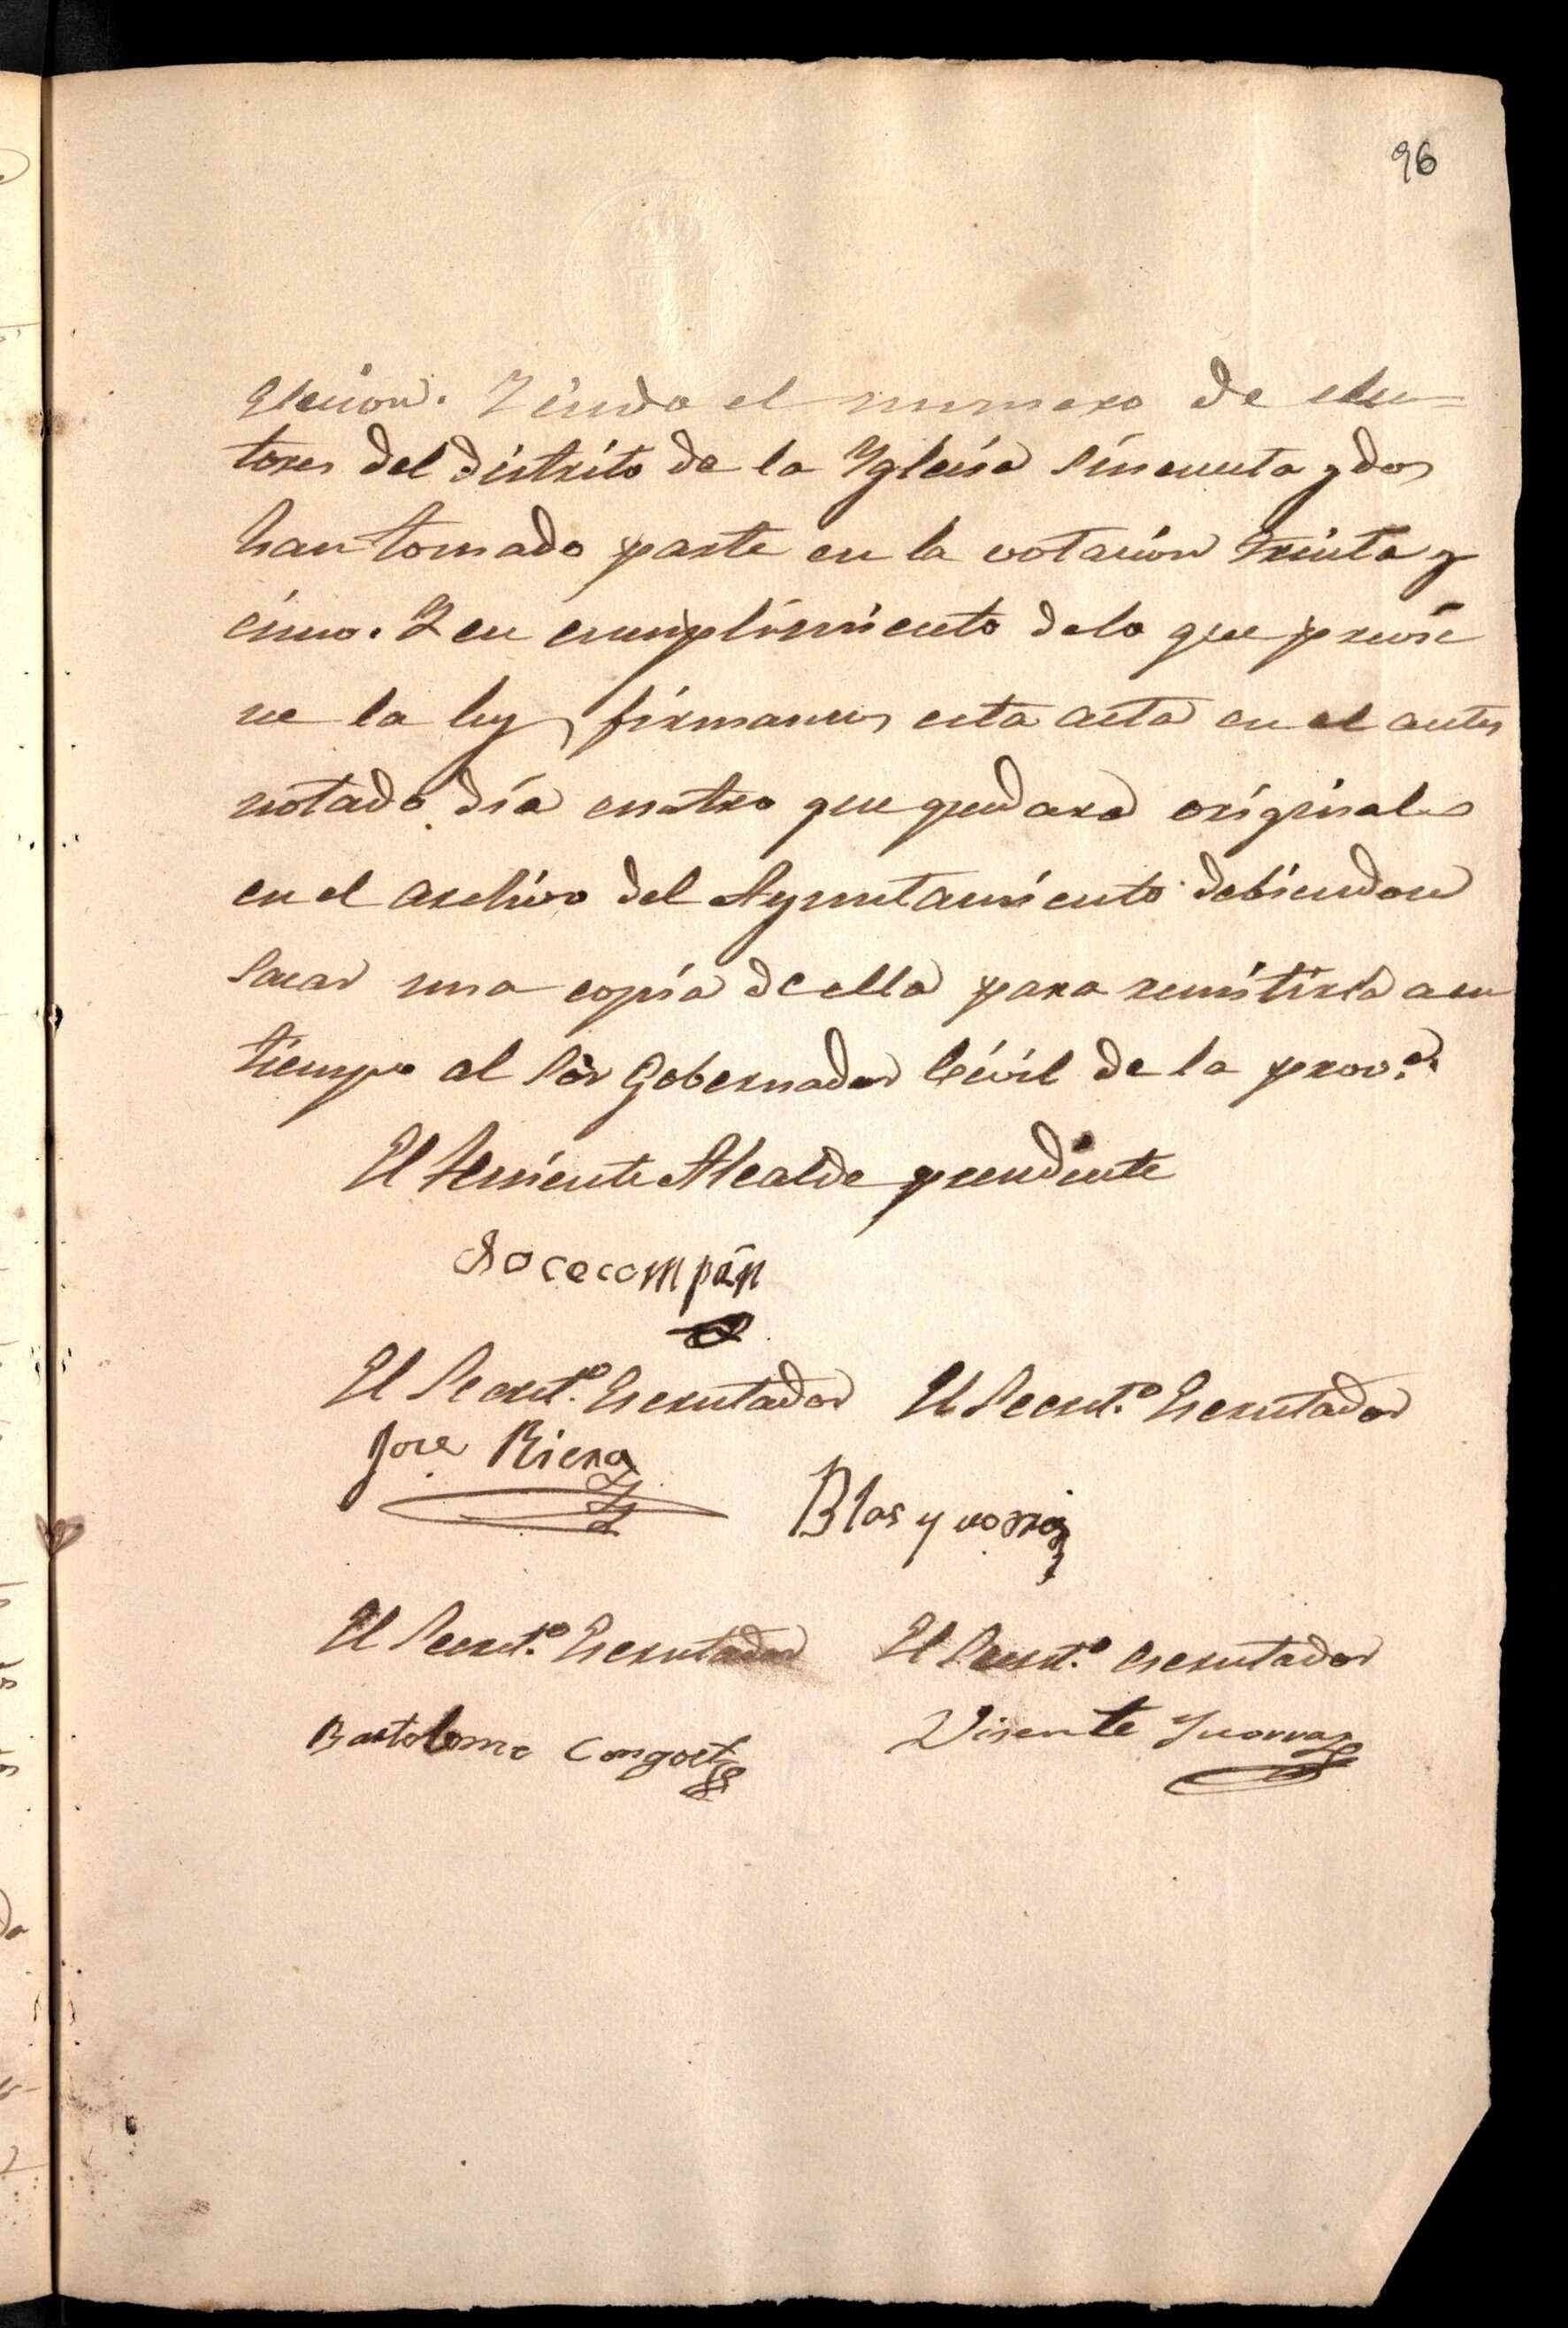 96
Elecion. Y siendo el numero de elec=
tores del distrito de la Yglesia sincuenta y dos
han tomado parte en la votacion treinta y
cinco. Y en cumplimiento de lo que previe
ne la ley, firmamos esta acta en el antes
notado dia cuatro que quedara original
en el archivo del Ayuntamiento debiendose
sacar una copia de ella para remitirla a su
tiempo al Sor Gobernador Civil de la prov.a
El Teniente Alcalde presidente
El Secret.o Escrutador El Secret.o Escrutador
Jose Riera
Blas
El Secret.o Escrutador El Secret.o escrutador
Bartolome Congost
Visente